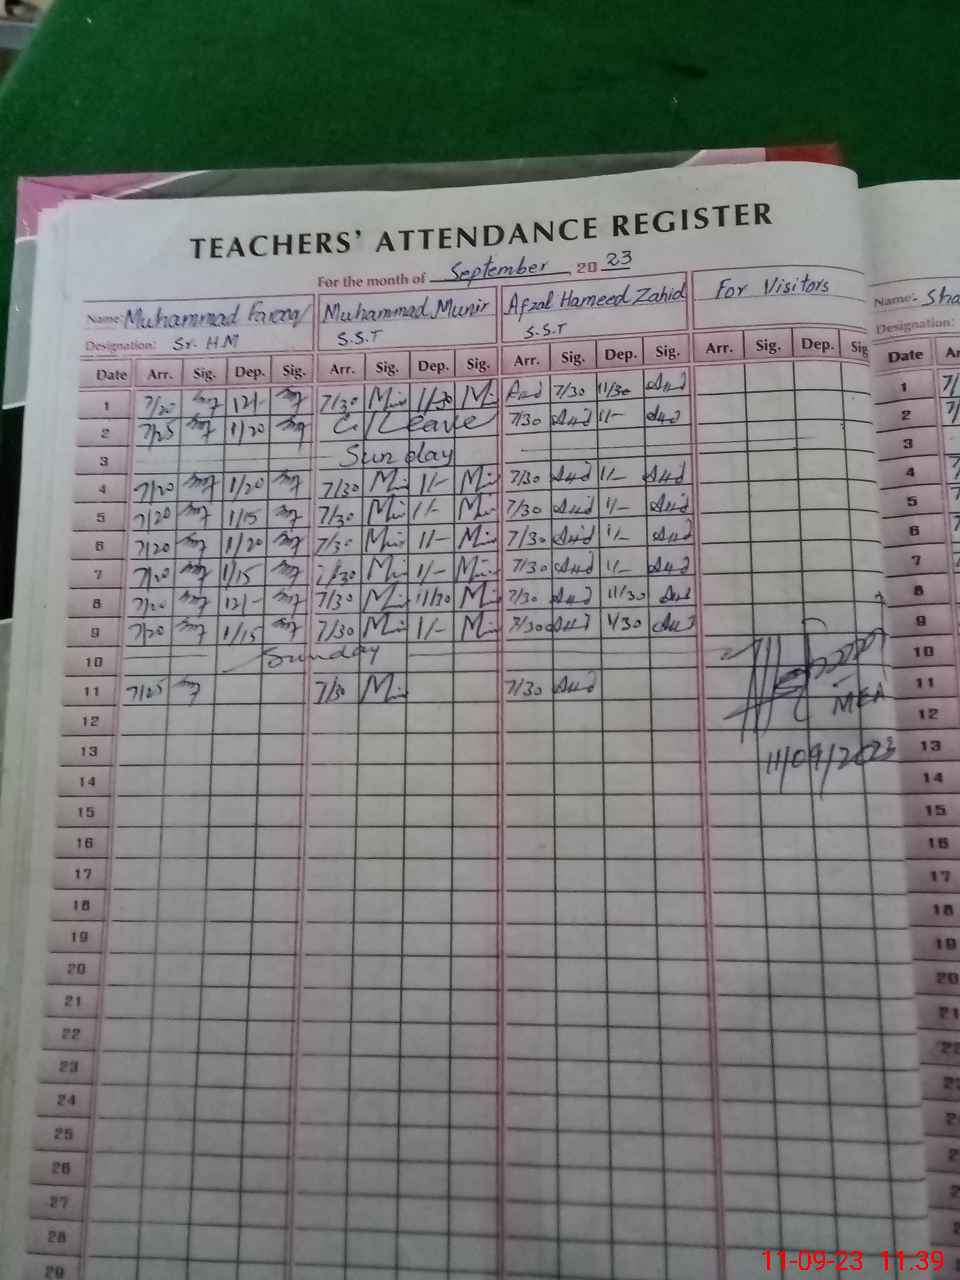 TEACHERS' ATTENDANCE REGISTER
For the month of September 20 23
Name: Muhammad Farooq Muhammad Munir Afzal Hameed Zahid For Visitors
Designation: Sr. H.M S.S.T S.S.T
Date Arr. Sig. Dep. Sig. Arr. Sig. Dep. Sig. Arr. Sig. Dep. Sig. Arr. Sig. Dep. Sig
1 7/20 12/- 7/30 11/30 7/30 11/30
2 7/25 1/20 C/Leave 7/30 1/-
3 Sunday
4 7/20 1/20 7/30 1/- 7/30 1/-
5 7/20 1/15 7/30 1/- 7/30 1/-
6 7/20 1/20 7/30 1/- 7/30 1/-
7 7/20 1/15 7/30 1/- 7/30 1/-
8 7/20 12/- 7/30 11/30 7/30 11/30
9 7/20 1/15 7/30 1/- 7/30 1/30
10 Sunday
11 7/25 7/30 7/30
MEA
12
13 11/09/2023
14
15
16
17
18
19
20
21
22
23
24
25
26
27
28
29
Name:- Sha
Designation:
Date Ar
1
2
3
4
5
6
7
8
9
10
11
12
13
14
15
16
17
18
19
20
21
22
11-09-23 11.39